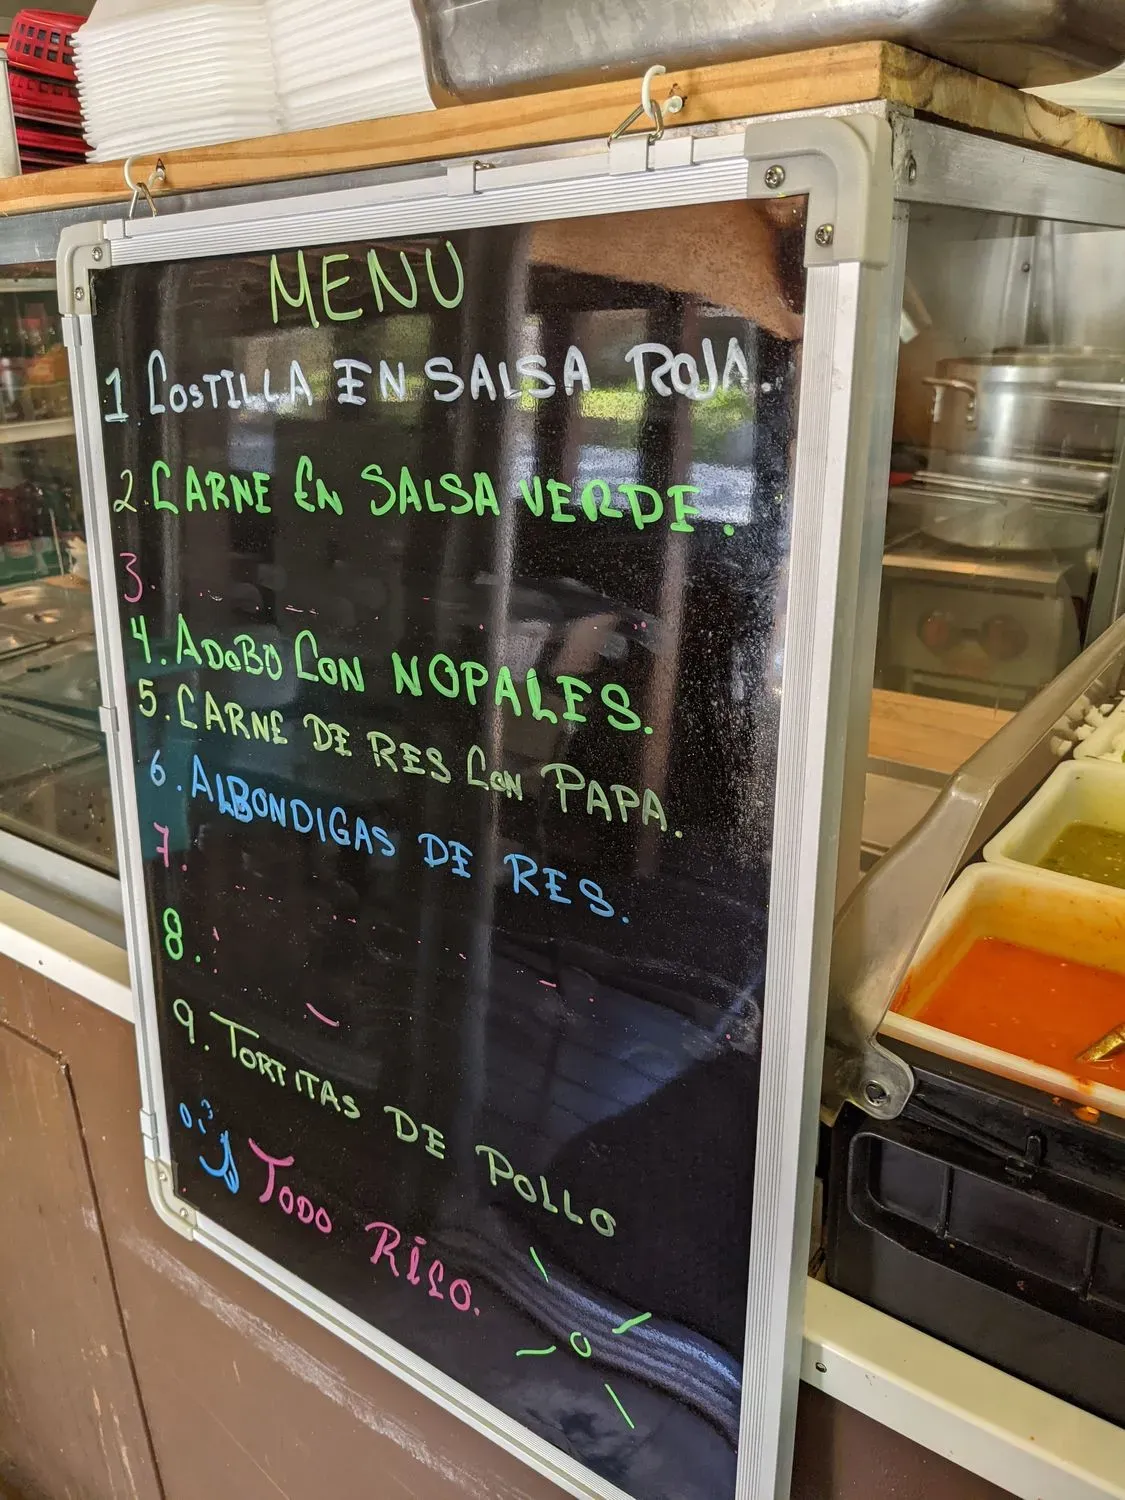 MENU
1 COSTILLA EN SALSA ROJA.
2. CARNE EN SALSA VERDE.
3.
4. ADOBO CON NOPALES.
5. CARNE DE RES CON PAPA.
6. ALBONDIGAS DE RES.
7.
8.
9. TORTITAS DE POLLO
TODO RICO.